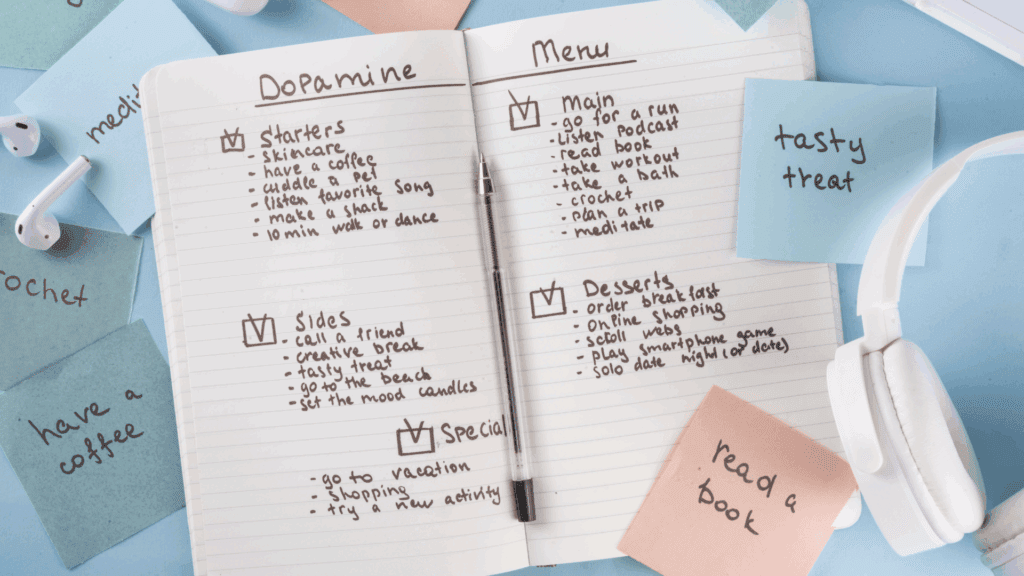 Dopamine
Starters
- skincare
- have a coffee
- cuddle a pet
- listen favorite song
- make a snack
- 10 min walk or dance
Sides
- call a friend
- creative break
- tasty treat
- go to the beach
- set the mood candles
Special
- go to vacation
- shopping
- try a new activity
Menu
Main
- go for a run
- listen podcast
- read book
- take workout
- take a bath
- crochet
- plan a trip
- meditate
Desserts
- order breakfast
- online shopping
- scroll webs
- play smartphone game
- solo date night (or date)
medit
rochet
have a
coffee
tasty
treat
read a
book